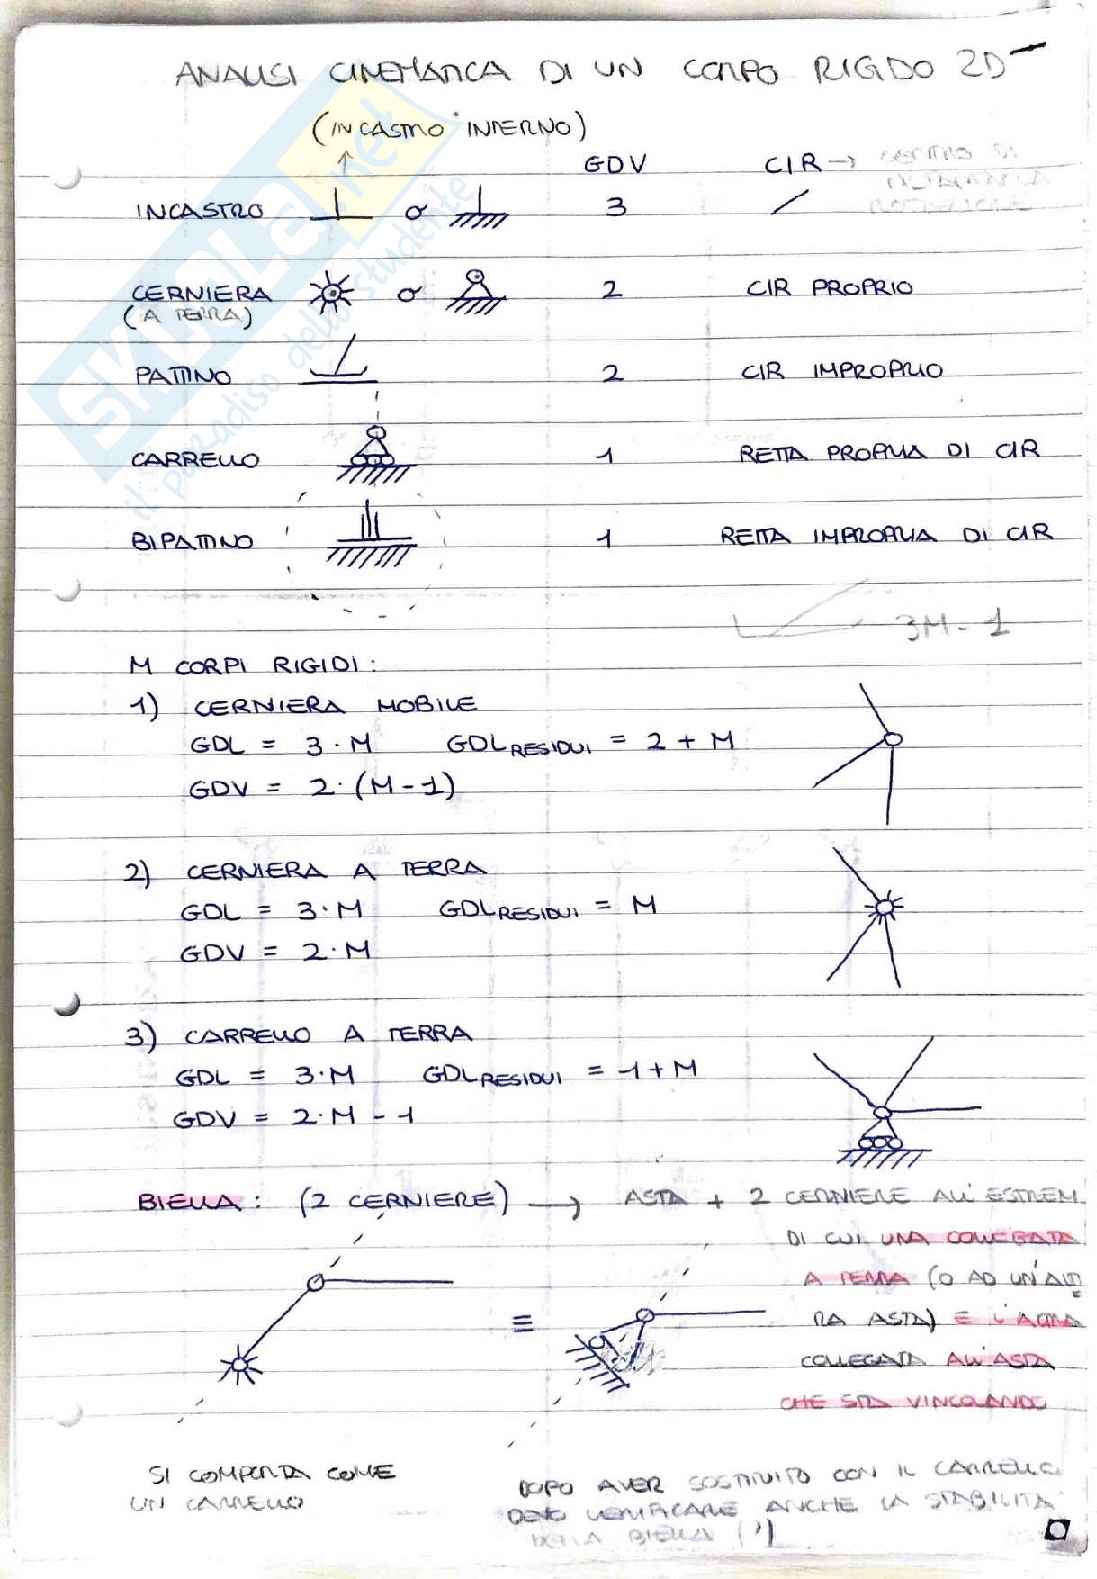 ANALISI CINEMATICA DI UN CORPO RIGIDO 2D
(INCASTRO INTERNO)
GDV CIR → CENTRO DI
INCASTRO o 3 /
CERNIERA o 2 CIR PROPRIO
(A TERRA)
PATTINO 2 CIR IMPROPRIO
CARRELLO 1 RETTA PROPRIA DI CIR
BIPATTINO 1 RETTA IMPROPRIA DI CIR
3M-1
M CORPI RIGIDI:
1) CERNIERA MOBILE
GDL = 3·M GDL RESIDUI = 2+M
GDV = 2·(M-1)
2) CERNIERA A TERRA
GDL = 3·M GDL RESIDUI = M
GDV = 2·M
3) CARRELLO A TERRA
GDL = 3·M GDL RESIDUI = 1+M
GDV = 2·M-1
BIELLA: (2 CERNIERE) → ASTA + 2 CERNIERE ALL'ESTREM
DI CUI UNA COLLEGATA
A TERRA (O AD UN'ALT
RA ASTA) E L'ALTRA
COLLEGATA ALL'ASTA
CHE STA VINCOLANDO
≡
SI COMPORTA COME
UN CARRELLO
DOPO AVER SOSTITUITO CON IL CARRELLO
DEVO VERIFICARE ANCHE LA STABILITA'
DELLA BIELLA (!)
SKUOLA.net
il paradiso dello studente